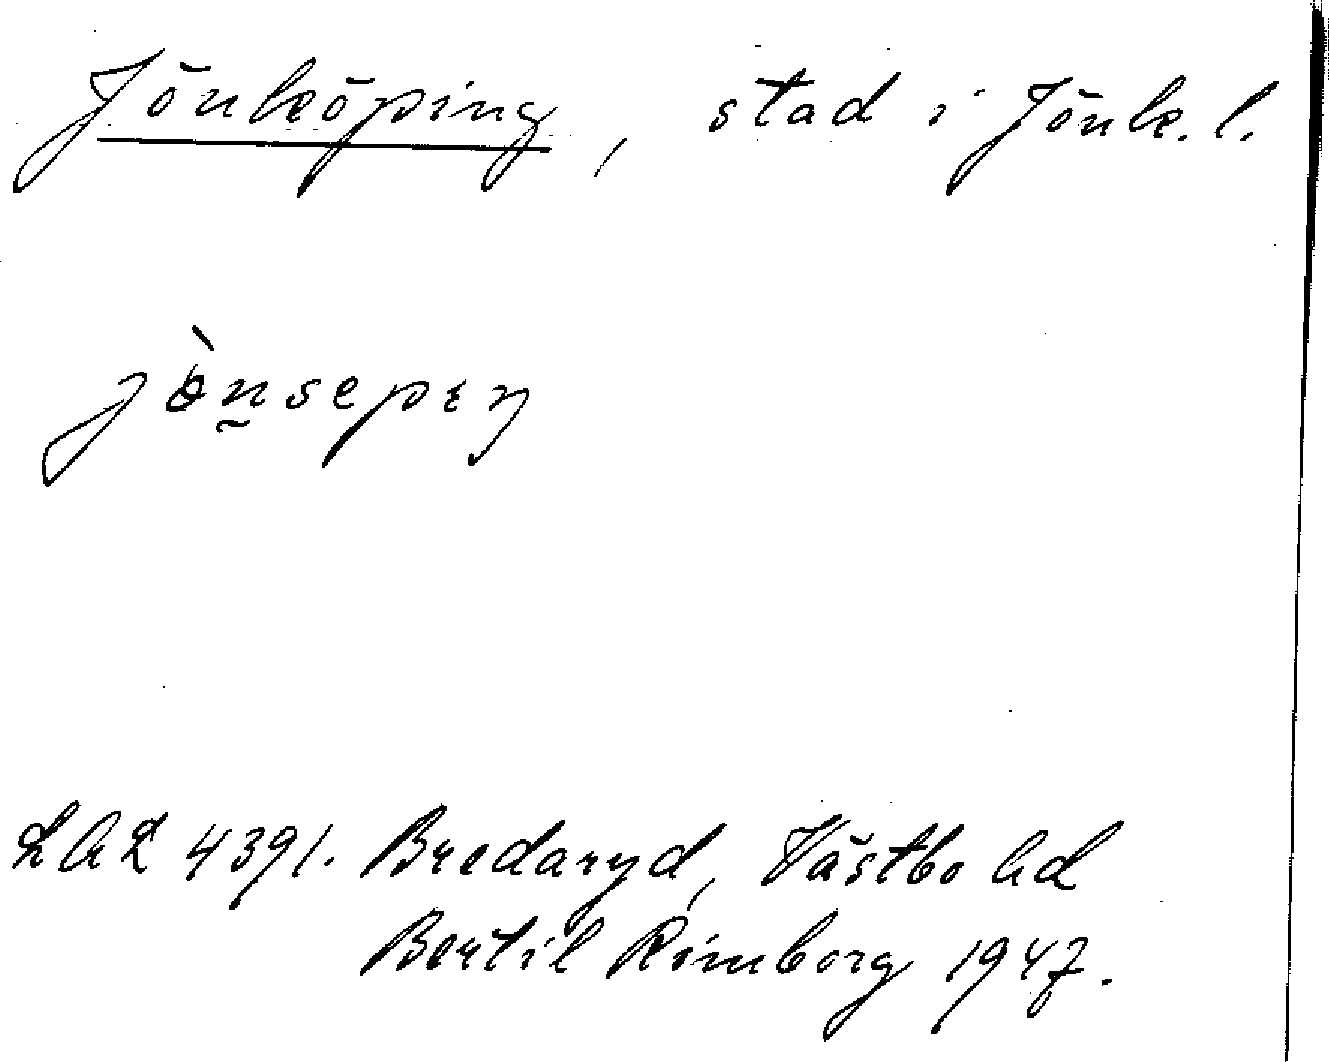 Jönköping, stad i Jönk. l.
jɵ̀n̰sepɪŋ
LAL 4391. Bredaryd, Västbo hd
Bertil Rimborg 1947.